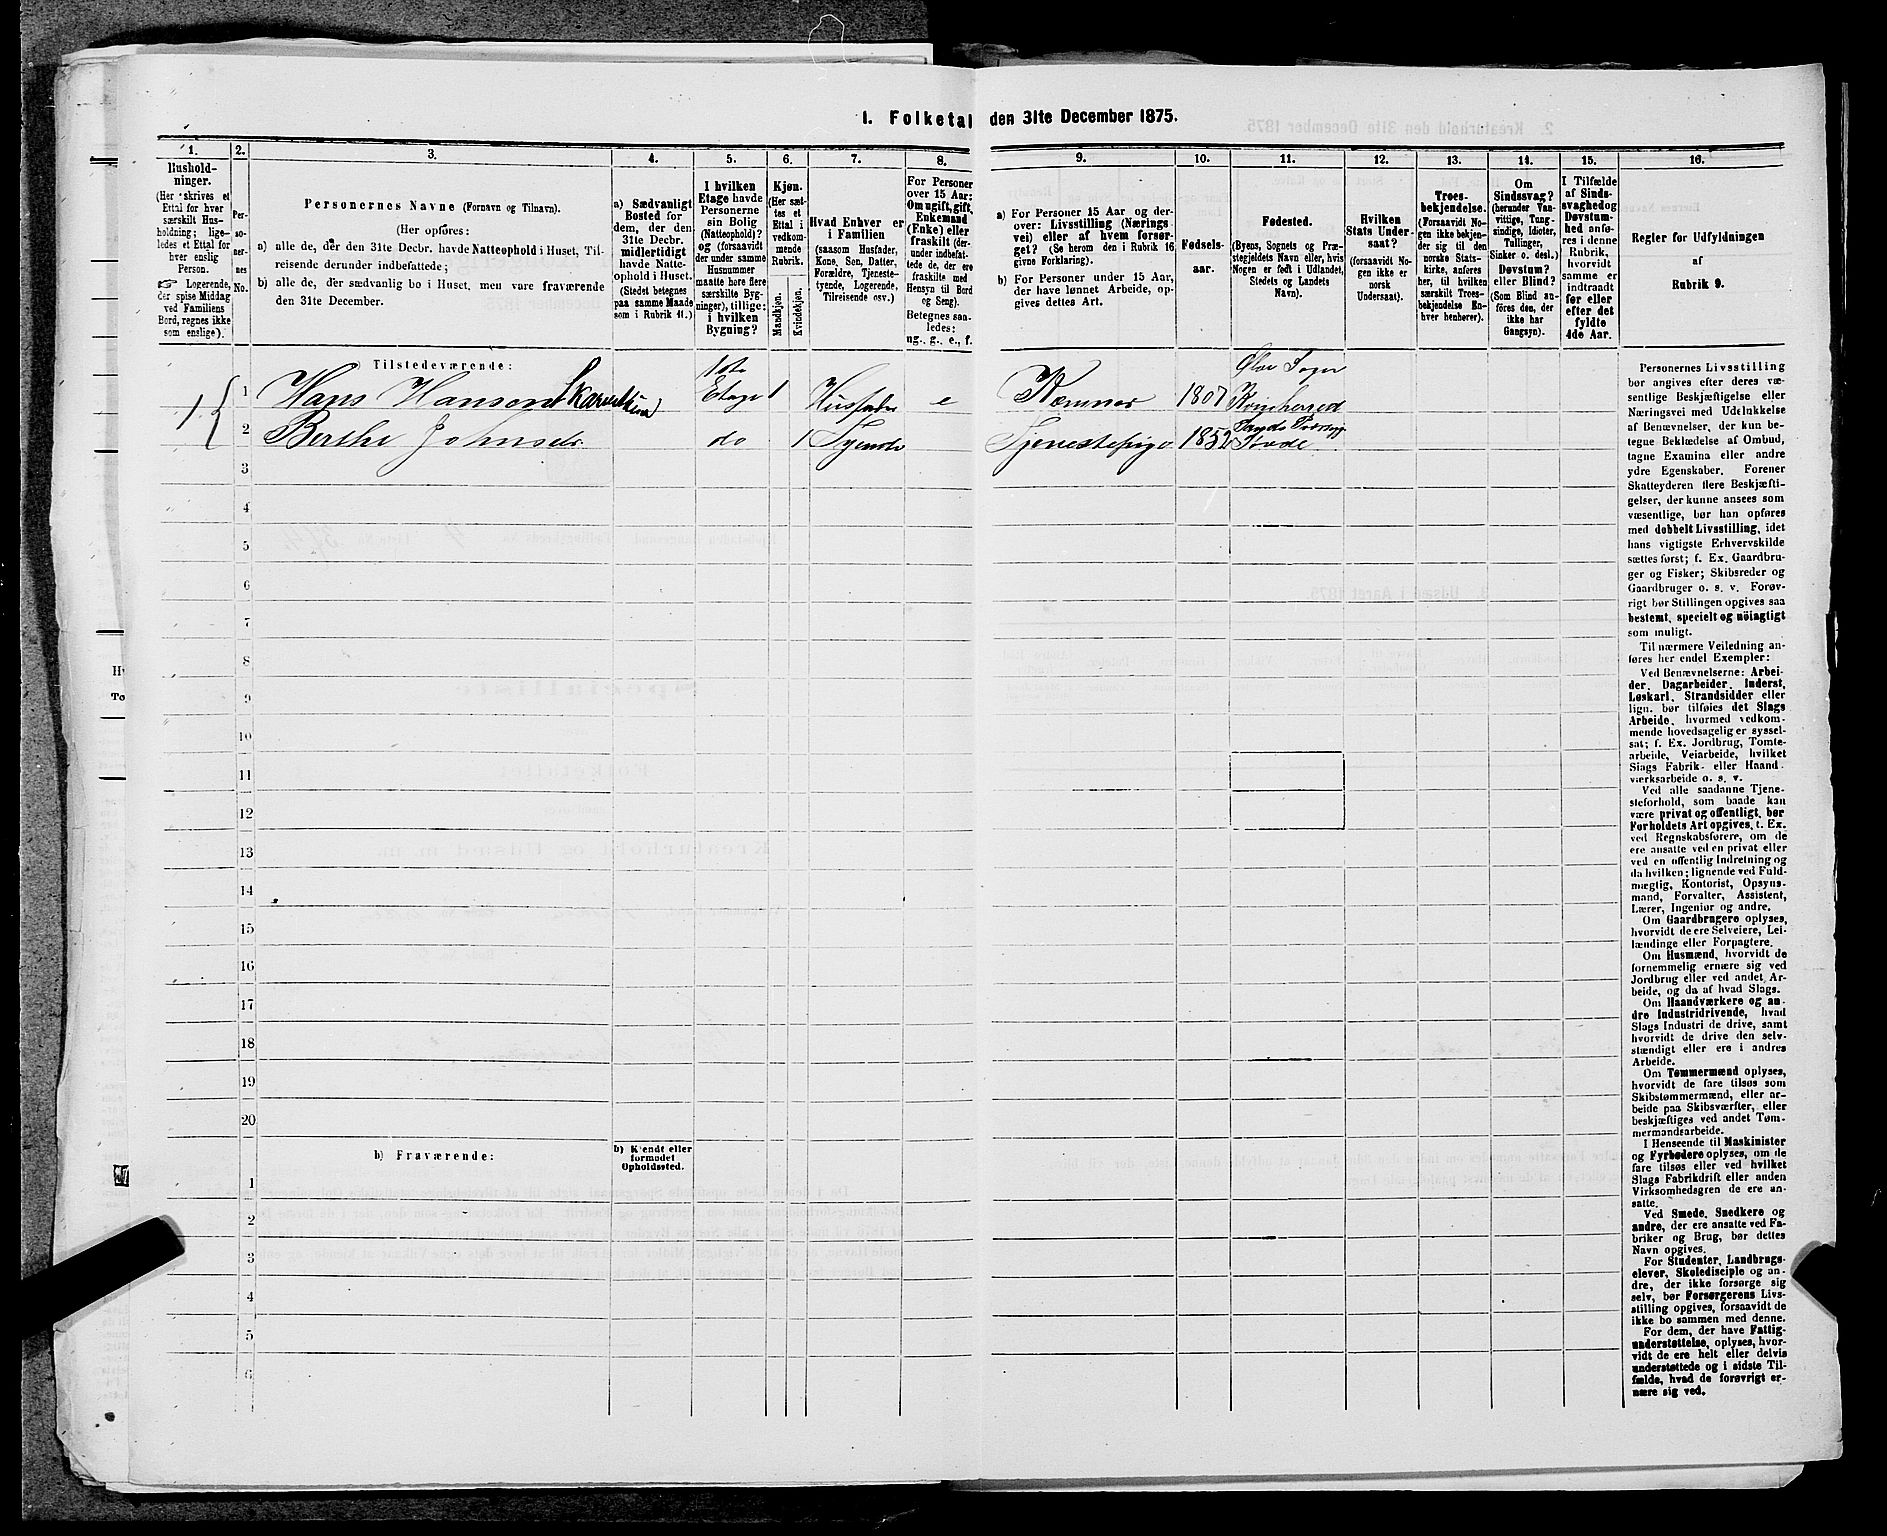 1. Folketal den 31te December 1875.
1.
Hushold-
ninger.
(Her skrives et
Ettal for hver
særskilt Hus-
holdning; lige-
ledes et Ettal for
hver enslig
Person.
☞ Logerende,
der spise Middag
ved Familiens
Bord, regnes ikke
som enslige).
2.
Per-
so-
ner-
nes
No.
3.
Personernes Navne (Fornavn og Tilnavn).
(Her opføres:
a) alle de, der den 31te Decbr. havde Natteophold i Huset, Til-
reisende derunder indbefattede;
b) alle de, der sædvanlig bo i Huset, men vare fraværende
den 31te December.
4.
a) Sædvanligt
Bosted for
dem, der den
31te Decbr.
midlertidigt
havde Natte-
ophold i Huset.
(Stedet betegnes
paa samme Maade
som i Rubrik 11.)
5.
I hvilken
Etage havde
Personerne
sin Bolig
(Natteophold)?
og (forsaavidt
der under samme
Husnummer
maatte høre flere
særskilte Byg-
ninger), tillige:
i hvilken
Bygning?
6.
Kjøn.
(Her sæt-
tes et
Ettal i
vedkom-
mende
Rubrik.
Mandkjøn.
Kvindekjøn.
7.
Hvad Enhver er
i Familien
(saasom Husfader,
Kone, Søn, Datter,
Forældre, Tjeneste-
tyende, Logerende,
Tilreisende osv.)
8.
For Personer
over 15 Aar:
Om ugift, gift,
Enkemand
(Enke) eller
fraskilt (der-
under indbefat-
tede de, der ere
fraskilte med
Hensyn til Bord
og Seng).
Betegnes saa-
ledes:
ug., g., e., f.
9.
a) For Personer 15 Aar og der-
over: Livsstilling (Nærings-
vei) eller af hvem forsør-
get? (Se herom den i Rubrik 16
givne Forklaring).
b) For Personer under 15 Aar,
der have lønnet Arbeide, op-
gives dettes Art.
10.
Fødsels-
aar.
11.
Fødested.
(Byens, Sognets og Præ-
stegjeldets Navn eller, hvis
Nogen er født i Udlandet,
Stedets og Landets
Navn).
12.
Hvilken
Stats Under-
saat?
(forsaavidt No-
gen ikke er
norsk
Undersaat).
13.
Troes-
bekjendelse.
(Forsaavidt No-
gen ikke bekjen-
der sig til den
norske Stats-
kirke, anføres
her, til hvilken
særskilt Troes-
bekjendelse En-
hver henhører).
14.
Om
Sindssvag?
(herunder Van-
vittige, Tung-
sindige, Idioter,
Tullinger,
Sinker o. desl.)
Døvstum?
eller Blind?
(Som Blind an-
føres den, der
ikke har
Gangsyn).
15.
I Tilfælde
af Sinds-
svaghed og
Døvstum-
hed anfø-
res i denne
Rubrik,
hvorvidt
samme er
indtraadt
før eller
efter det
fyldte
4de Aar.
16.
Regler for Udfyldningen
af
Rubrik 9.
Tilstedeværende:
1 1 Hans Hanson 1ste Etage 1 Husfader e Kæmner 1807
2 Berthe Johnsdr do 1 Tyende Tjenestepige 1852
3
4
5
6
7
8
9
10
11
12
13
14
15
16
17
18
19
20
b) Fraværende:
b) Kjendt eller
formodet
Opholdssted.
1
2
3
4
5
6
Personernes Livsstilling
bør angives efter deres væ-
sentlige Beskjæftigelse eller
Næringsvei med Udelukkelse
af Benævnelser, der kun be-
tegne Beklædelse af Ombud,
tagne Examina eller andre
ydre Egenskaber. Forener
Skatteyderen flere Beskjæfti-
gelser, der kunne ansees som
væsentlige, bør han opføres
med dobbelt Livsstilling, idet
hans vigtigste Erhvervskilde
sættes først; f. Ex. Gaardbru-
ger og Fisker; Skibsreder og
Gaardbruger o. s. v. Forøv-
rigt bør Stillingen opgives saa
bestemt, specielt og nøiagtigt
som muligt.
Til nærmere Veiledning an-
føres her endel Exempler:
Ved Benævnelserne: Arbei-
der, Dagarbeider, Inderst,
Løskarl, Strandsidder eller
lign. bør tilføies det Slags
Arbeide, hvormed vedkom-
mende hovedsagelig er syssel-
sat; f. Ex. Jordbrug, Tomte-
arbeide, Veiarbeide, hvilket
Slags Fabrik- eller Haand-
værksarbeide o. s. v.
Ved alle saadanne Tjene-
steforhold, som baade kan
være privat og offentligt, bør
Forholdets Art opgives, t. Ex.
ved Regnskabsførere, om de
ere ansatte ved en privat eller
ved en offentlig Indretning og
da hvilken; lignende ved Fuld-
mægtig, Kontorist, Opsyns-
mand, Forvalter, Assistent,
Lærer, Ingeniør og andre.
Om Gaardbrugere oplyses,
hvorvidt de ere Selveiere, Lei-
lændinge eller Forpagtere.
Om Husmænd, hvorvidt de
fornemmelig ernære sig ved
Jordbrug eller ved andet Ar-
beide, og da af hvad Slags.
Om Haandværkere og an-
dre Industridrivende, hvad
Slags Industri de drive, samt
hvorvidt de drive den selv-
stændigt eller ere i andres
Arbeide.
Om Tømmermænd oplyses,
hvorvidt de fare tilsøs som
Skibstømmermænd, eller ar-
beide paa Skibsværfter, eller
beskjæftiges ved andet Tøm-
mermandsarbeide.
I Henseende til Maskinister
og Fyrbødere oplyses, om de
fare tilsøs eller ved hvilket
Slags Fabrikdrift eller anden
Virksomhedsgren de ere an-
satte.
Ved Smede, Snedkere og
andre, der ere ansatte ved Fa-
briker og Brug, bør dettes
Navn opgives.
For Studenter, Landbrugs-
elever, Skoledisciple og an-
dre, der ikke forsørge sig
selv, bør Forsørgerens Livs-
stilling opgives, forsaavidt de
ikke bo sammen med denne.
For dem, der have Fattig-
understøttelse, oplyses, hvor-
vidt de ere helt eller delvis
understøttede og i sidste Til-
fælde, hvad de forøvrigt er-
nære sig ved.